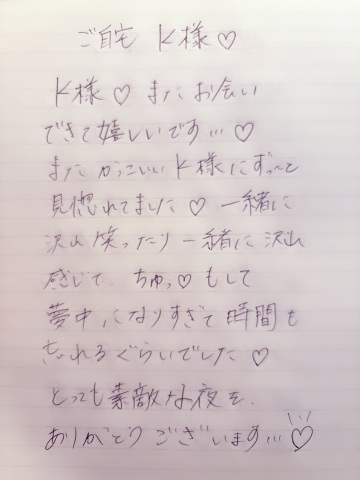 ご自宅 K様♡
K様♡ またお会い
できて嬉しいです…♡
またかっこいいK様にずーっと
見惚れてました♡ 一緒に
沢山笑ったり一緒に沢山
感じて、ちゅっ♡もして
夢中になりすぎて時間も
忘れるぐらいでした♡
とっても素敵な夜を、
ありがとうございます…♡